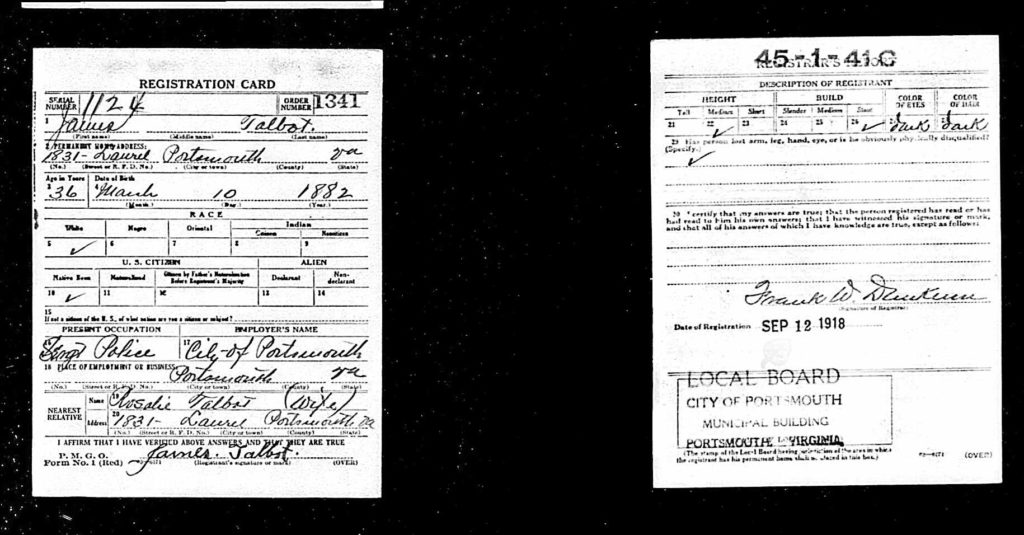 REGISTRATION CARD
SERIAL NUMBER 1124 ORDER NUMBER 1341
1 James Talbot.
(First name) (Middle name) (Last name)
2 PERMANENT HOME ADDRESS:
1831- Laurel Portsmouth Va
(No.) (Street or R. F. D. No.) (City or town) (County) (State)
Age in Years Date of Birth
3 36 4 March 10 1882
(Month.) (Day.) (Year.)
RACE
White Negro Oriental Indian
Citizen Noncitizen
5 ✓ 6 7 8 9
U. S. CITIZEN ALIEN
Native Born Naturalized Citizen by Father's Naturalization Before Registrant's Majority Declarant Non-declarant
10 ✓ 11 12 13 14
15
If not a citizen of the U. S., of what nation are you a citizen or subject?
PRESENT OCCUPATION EMPLOYER'S NAME
16 Sergt Police 17 City of Portsmouth
18 PLACE OF EMPLOYMENT OR BUSINESS:
Portsmouth Va
(No.) (Street or R. F. D. No.) (City or town) (County) (State)
NEAREST RELATIVE Name 19 Rosalie Talbot (Wife)
Address 20 1831- Laurel Portsmouth. Va
(No.) (Street or R. F. D. No.) (City or town) (County) (State)
I AFFIRM THAT I HAVE VERIFIED ABOVE ANSWERS AND THAT THEY ARE TRUE
P. M. G. O.
Form No. 1 (Red) James. Talbot.
(Registrant's signature or mark) (OVER)
45-1-41 C
REGISTRAR'S REPORT
DESCRIPTION OF REGISTRANT
HEIGHT BUILD COLOR OF EYES COLOR OF HAIR
Tall Medium Short Slender Medium Stout
21 22 ✓ 23 24 25 26 ✓ 27 dark 28 dark
29 Has person lost arm, leg, hand, eye, or is he obviously physically disqualified?
(Specify.)
✓
30 I certify that my answers are true; that the person registered has read or has
had read to him his own answers; that I have witnessed his signature or mark,
and that all of his answers of which I have knowledge are true, except as follows:
Frank W.
(Signature of Registrar)
Date of Registration SEP 12 1918
LOCAL BOARD
CITY OF PORTSMOUTH
MUNICIPAL BUILDING
PORTSMOUTH, VIRGINIA.
(The stamp of the Local Board having jurisdiction of the area in which
the registrant has his permanent home shall be placed in this box.)
(OVER)